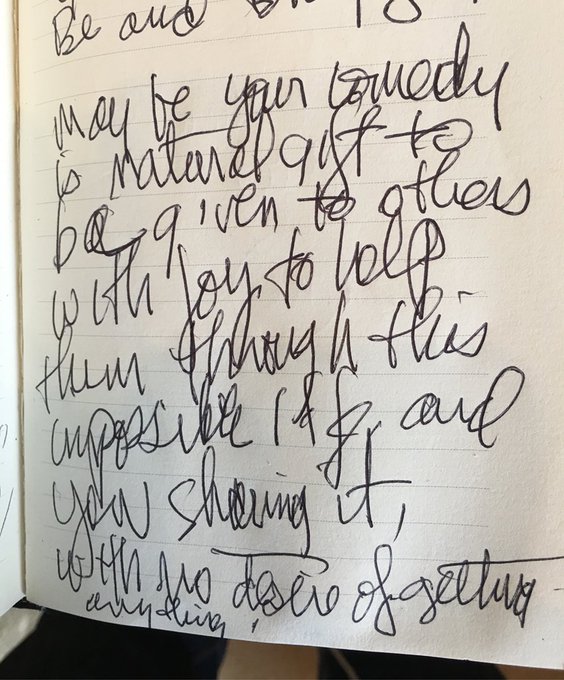 Be and
may be your comedy
is natural gift to
be given to others
with joy to help
them through this
impossible life, and
your sharing it,
with no desire of getting
anything,